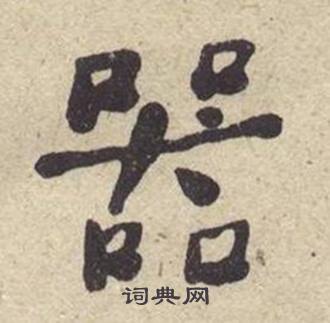 器
词典网